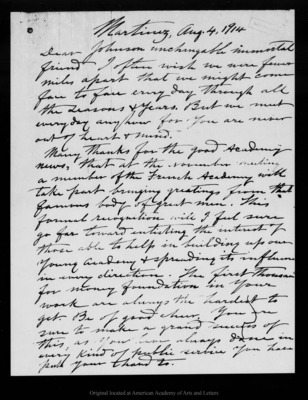 Martinez, Aug. 4, 1914
Dear Johnson unchangable immortal
friend, I often wish we were fewer
miles apart that we might come
face to face every day through all
the seasons & years. But we meet
everyday anyhow for you are never
out of heart & mind.
Many thanks for the good Academy
news, that at the November meeting
a member of the French Academy will
take part bringing greetings from that
famous body of great men. This
formal recognition will I feel sure
go far toward enlisting the interest of
those able to help in building up our
Young Academy & spreading its influence
in every direction. The first thousands
for money foundation in your
work are always the hardest to
get. Be of good cheer. You're
sure to make a grand success of
this, as you have always done in
every kind of public service you have
put your hand to.
Original located at American Academy of Arts and Letters